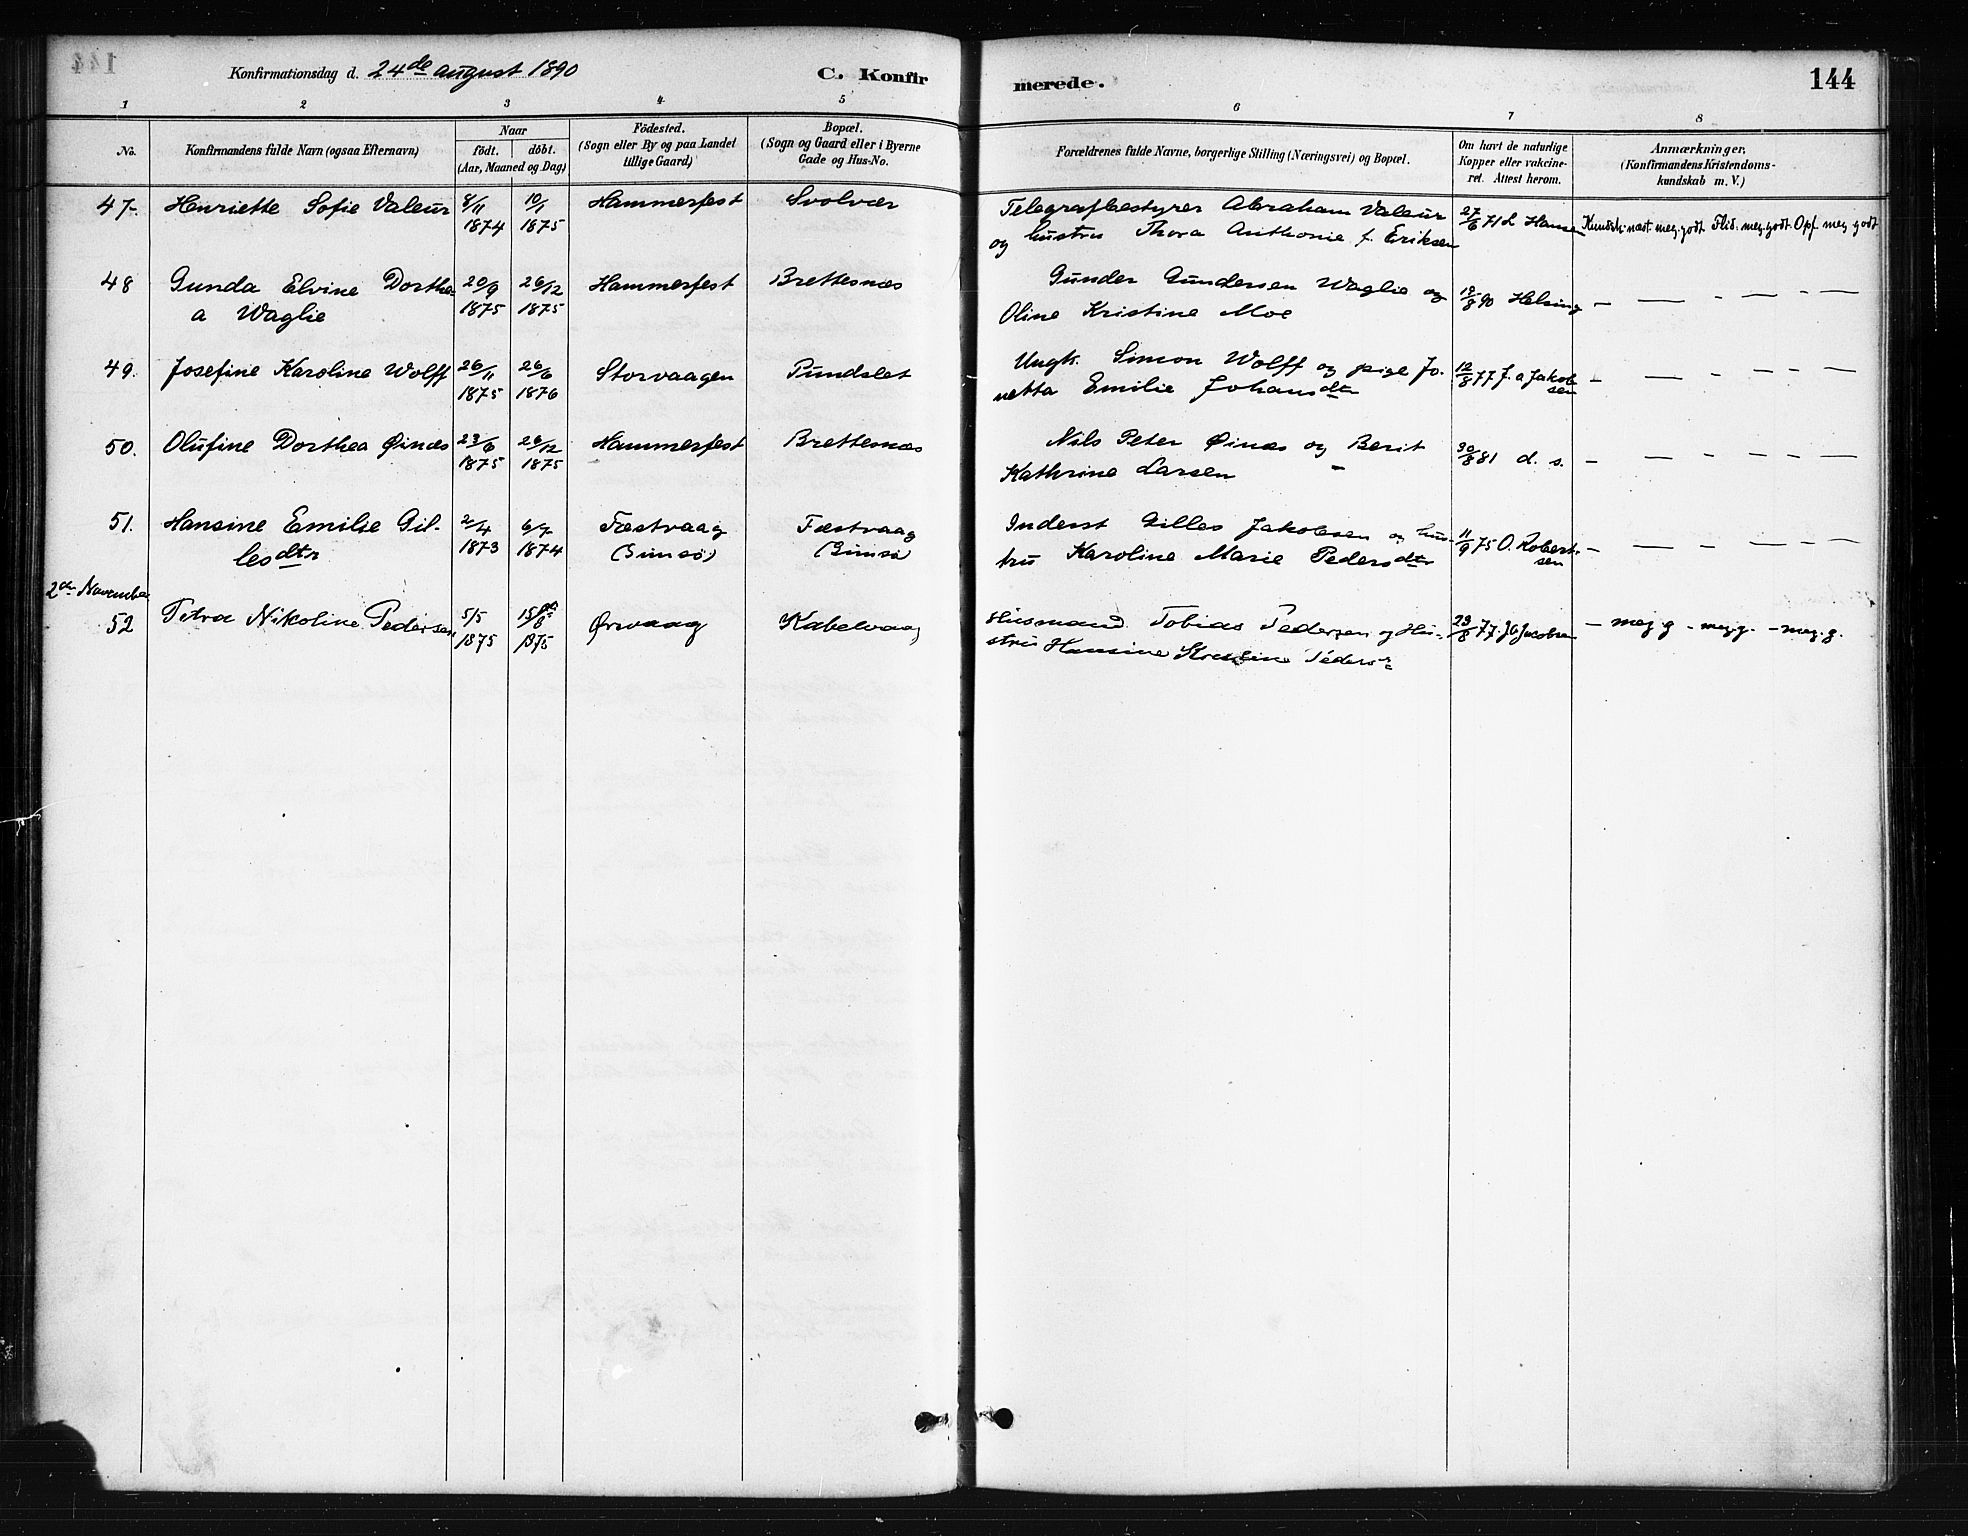 Konfirmationsdag d. 24de august 1890
C. Konfirmerede.
144
1 2 3 4 5 6 7 8
No.
Konfirmandens fulde Navn (ogsaa Efternavn)
Naar
födt. döbt.
(Aar, Maaned og Dag)
Födested.
(Sogn eller By og paa Landet
tillige Gaard)
Bopæl.
(Sogn og Gaard eller i Byerne
Gade og Hus-No.
Forældrenes fulde Navne, borgerlige Stilling (Næringsvei) og Bopæl.
Om havt de naturlige
Kopper eller vakcine-
ret. Attest herom.
Anmærkninger,
(Konfirmandens Kristendoms-
kundskab m. V.)
47. Henriette Sofie Valeur 8/11 1874 10/1 1875 Hammerfest Svolvær
Telegrafbestyrer Abraham Valeur
og hustru Thora Anthonie f. Eriksen
27/6 71 L Hansen Kundsk. næst meg. godt Flid. meg. godt. Opf. meg godt
48 Gunda Elvine Dorthe-
a Waglie
20/9 1875 26/12 1875 Hammerfest Brettesnæs
Gunder Gundersen Waglie og
Oline Kristine Moe
12/8 90 Helsing — — - — - —
49. Josefine Karoline Wolff 26/11 1875 26/6 1876 Storvaagen Pundslet
Ungk. Simon Wolff og pige Jo-
netta Emilie Johansdtr
12/8 77 J. a Jakob-
sen
— — - — - —
50. Olufine Dorthea Øinæs 23/6 1875 26/12 1875 Hammerfest Brettesnæs
Nils Peter Øinæs og Berit
Kathrine Larsen
30/8 81 d. s. — — - — - —
51. Hansine Emilie Gil-
lesdtr
2/4 1873 6/7 1874 Fæstvaag
(Gimsø)
Fæstvaag
(Gimsø)
Inderst Gilles Jakobsen og hus-
tru Karoline Marie Pedersdtr
11/9 75 O. Robert-
sen
— — - — - —
2den November
52 Petra Nikoline Pedersen 5/5 1875 15/8 1875 Ørsvaag Kabelvaag
Husmand Tobias Pedersen og Hu-
stru Hansine Kristine Pedersdr
23/8 77. JG Jacobsen — meg. g - meg. g. - meg. g.